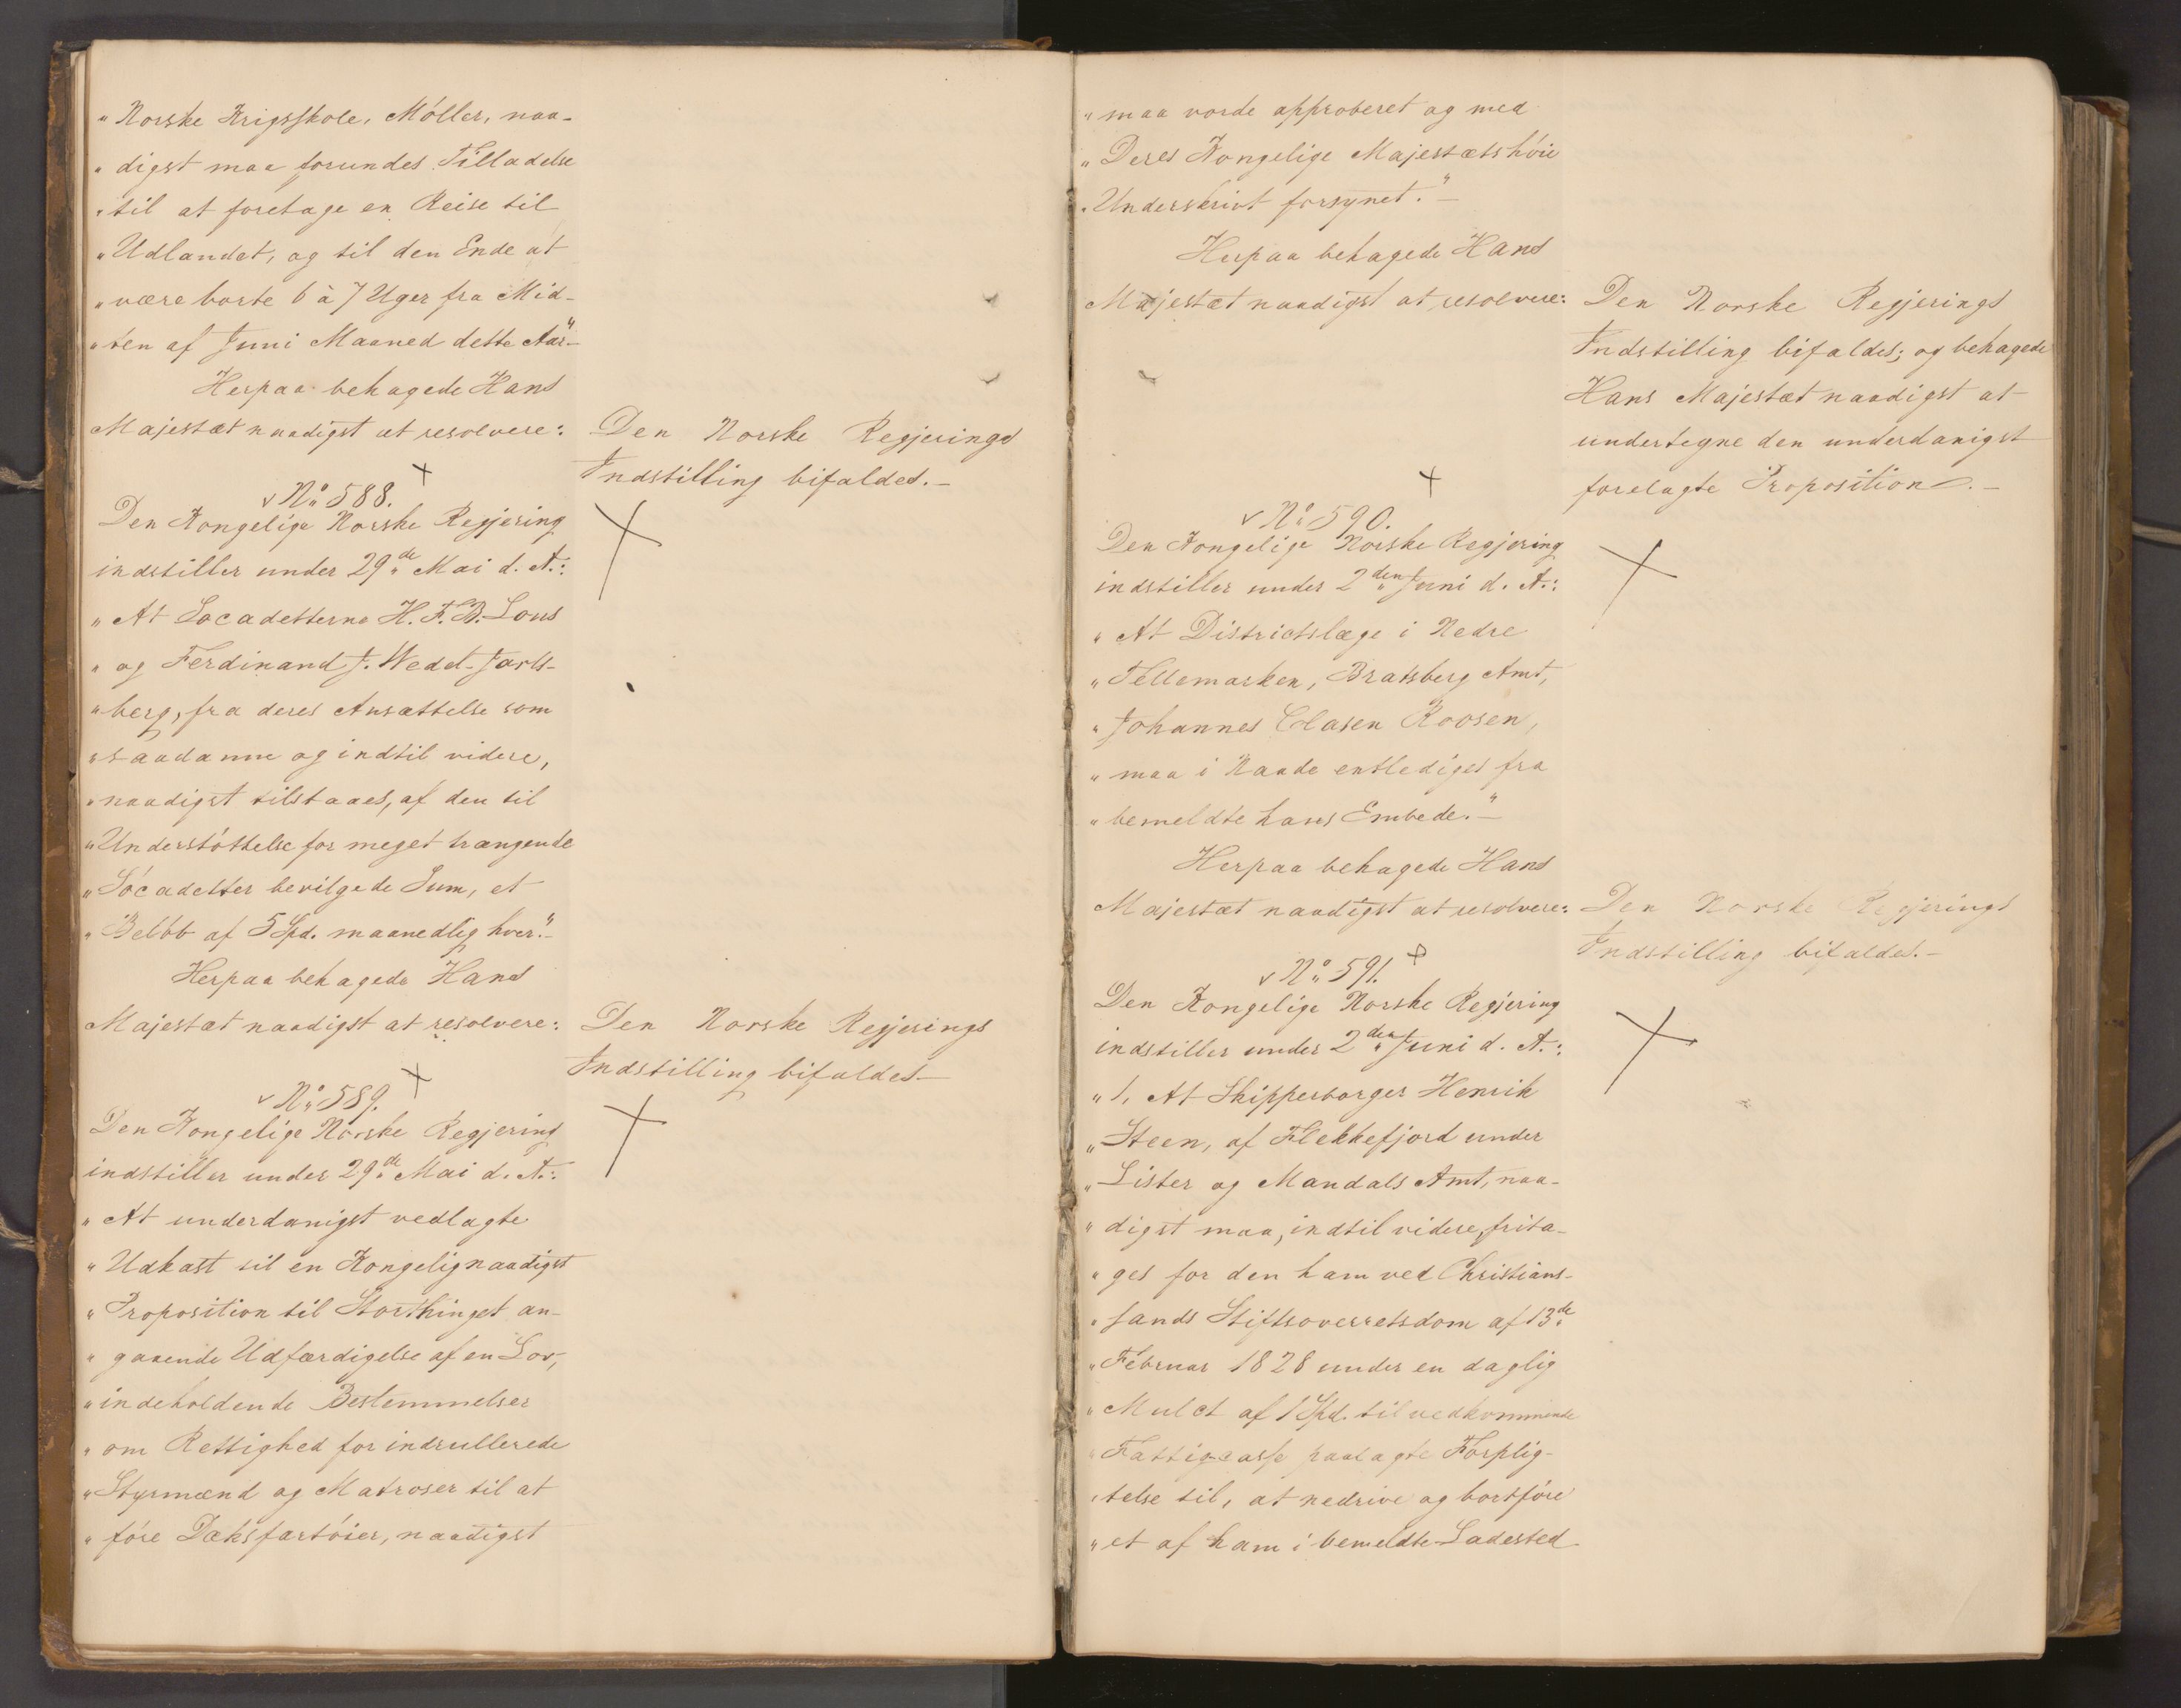 „Norske Krigsskole, Möller, naa-
„digst maa forundes Tilladelse
„til at foretage en Reise til
„Udlandet, og til den Ende at
„være borte 6 à 7 Uger fra Mid-
„ten af Juni Maaned dette Aar"-
Herpaa behagede Hans
Majestæt naadigst at resolvere:
Den Norske Regjerings
Indstilling bifaldes.-
No 588.
Den Kongelige Norske Regjering
indstiller under 29de Mai d. A.:
„At Söcadetterne H. F. B. Lous
„og Ferdinand J. Wedel-Jarls-
„berg, fra deres Ansættelse som
„saadanne og indtil videre,
„naadigst tilstaaes, af den til
„Understöttelse for meget trængende
„Söcadetter bevilgede Sum, et
„Belöb af 5 Spd. maanedlig hver."-
Herpaa behagede Hans
Majestæt naadigst at resolvere:
Den Norske Regjerings
Indstilling bifaldes-
No 589.
Den Kongelige Norske Regjering
indstiller under 29de Mai d. A.:
„At underdanigst vedlagte
„Udkast til en Kongelig naadigst
„Proposition til Storthinget an-
„gaaende Udfærdigelse af en Lov,
„indeholdende Bestemmelser
„om Rettighed for indrullerede
„Styrmænd og Matroser til at
„före Dæksfartöier, naadigst
„maa vorde approberet og med
„Deres Kongelige Majestæts höie
„Underskrivt forsynet."-
Herpaa behagede Hans
Majestæt naadigst at resolvere:
Den Norske Regjerings
Indstilling bifaldes; og behagede
Hans Majestæt naadigst at
undertegne den underdanigst
forelagte Proposition.-
No 590.
Den Kongelige Norske Regjering
indstiller under 2den Juni d. A.:
„At Districtslæge i Nedre
„Tellemarken, Bratsberg Amt,
„Johannes Clasen Roosen,
„maa i Naade entlediges fra
„bemeldte hans Embede."-
Herpaa behagede Hans
Majestæt naadigst at resolvere:
Den Norske Regjerings
Indstilling bifaldes.-
No 591.
Den Kongelige Norske Regjering
indstiller under 2den Juni d. A.:
„1, At Skipperborger Henrik
„Steen, af Flekkefjord under
„Lister og Mandals Amt, naa-
„digst maa, indtil videre, frita-
„ges for den ham ved Christians-
„sands Stiftsoverretsdom af 13de
„Februar 1828 under en daglig
„Mulct af 1 Spd. til vedkommende
„Fattigcasse paalagte Forplig-
„telse til, at nedrive og bortföre
„et af ham i bemeldte Ladested